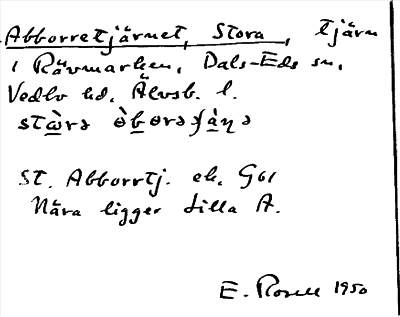 Abborretjärnet, Stora, tjärn
i Rävmarken, Dals-Eds sn,
Vedbo hd, Älvsb. l.
St. Abborrtj. ek. G61
Nära ligger Lilla A.
E. Rosell 1950